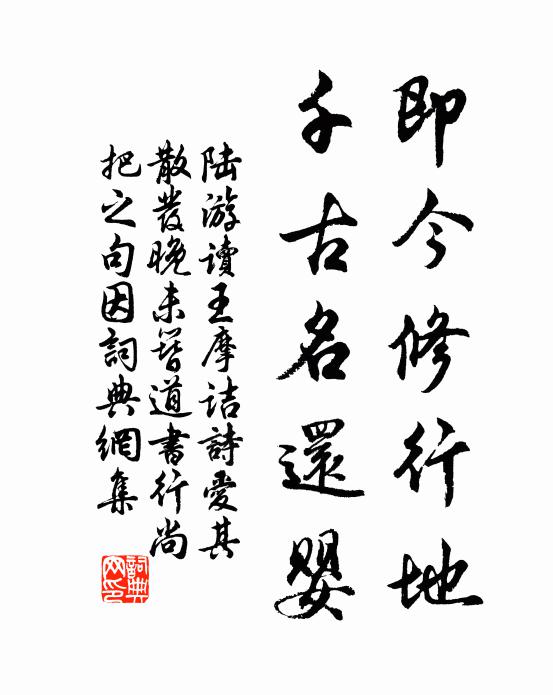 即今修行地
千古名還嬰
陆游讀王摩诘詩愛其
散發晚未簪道書行尚
把之句因詞典網集
詞典网印